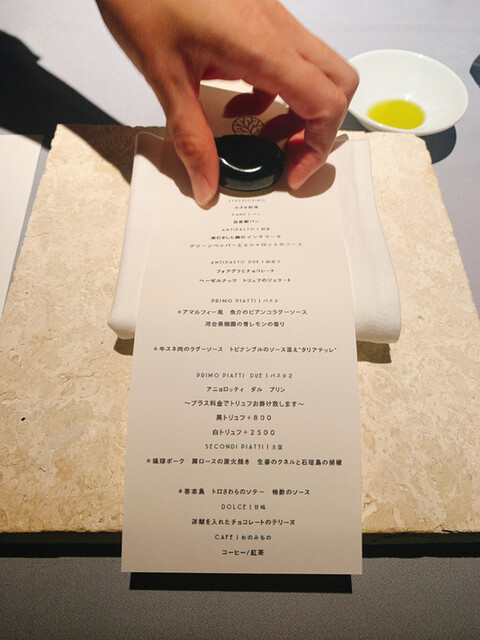 STUZZICHINO
小さな前菜
PANE | パン
自家製パン
ANTIPASTO | 前菜
グリーンペッパーとエシャロットのソース
ANTIPASTO DUE | 前菜2
フォアグラとチョコレート
ヘーゼルナッツ トリュフのジェラート
PRIMO PIATTI | パスタ
*アマルフィー風 魚介のビアンコラグーソース
河合果樹園の青レモンの香り
*牛スネ肉のラグーソース トピナンブルのソース添え"タリアテッレ"
PRIMO PIATTI DUE | パスタ2
アニョロッティ ダル プリン
〜プラス料金でトリュフお掛け致します〜
黒トリュフ+800
白トリュフ+2500
SECONDI PIATTI | 主菜
*琉球ポーク 肩ロースの炭火焼き 生姜のクネルと石垣島の胡椒
*答志島 トロさわらのソテー 柿酢のソース
DOLCE | 甘味
洋梨を入れたチョコレートのテリーヌ
CAFE | おのみもの
コーヒー/紅茶